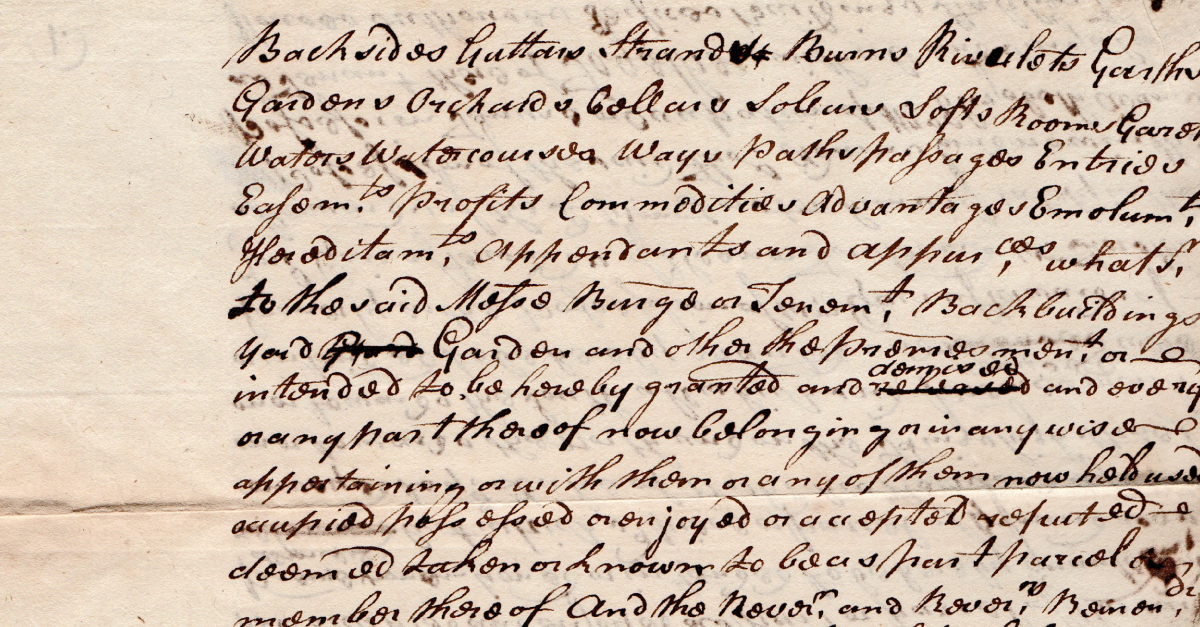 Backsides Guttars Strands Burns Rivulets Garths
Gardens Orchards Cellars Sollars Lofts Rooms Gare
Waters Watercourses Ways Paths passages Entries
Easem.ts Profits Commodities Advantages Emolum.ts
Hereditam.ts Appendants and appur.ces whats.r
to the said Messe Burge or Tenem.t Backbuildings
yard Garden and other the Premes ment.d or
intended to be hereby granted and demised and every
or any part thereof now belonging or in any wise
appertaining or with them or any of them now held used
occupied possessed or enjoyed or accepted reputed
deemed taken or known to be as part parcel or
member thereof And the Rever.n and Rever.ns Remen.dr